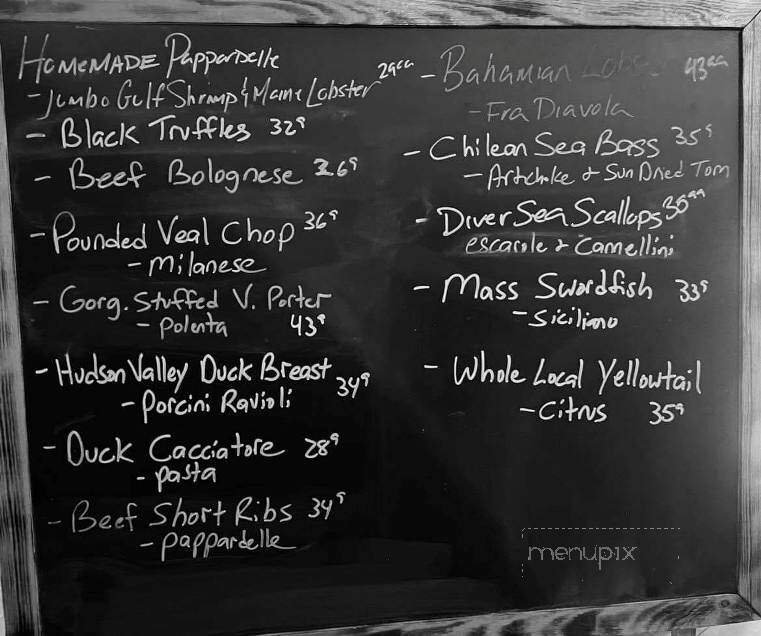 HOMEMADE Pappardelle
- Jumbo Gulf Shrimp & Maine Lobster 29⁹⁹
- Black Truffles 32⁹
- Beef Bolognese 26⁹
- Pounded Veal Chop 36⁹
- Milanese
- Gorg. Stuffed V. Porter
- Polenta 43⁹
- Hudson Valley Duck Breast 34⁹
- Porcini Ravioli
- Duck Cacciatore 28⁹
- pasta
- Beef Short Ribs 34⁹
- pappardelle
- Bahamian Lobster 43⁹⁹
- Fra Diavola
- Chilean Sea Bass 35⁹
- Artichoke & Sun Dried Tom
- Diver Sea Scallops 35⁹⁹
escarole & Camellini
- Mass Swordfish 33⁹
- Siciliano
- Whole Local Yellowtail
- Citrus 35⁹
menupix